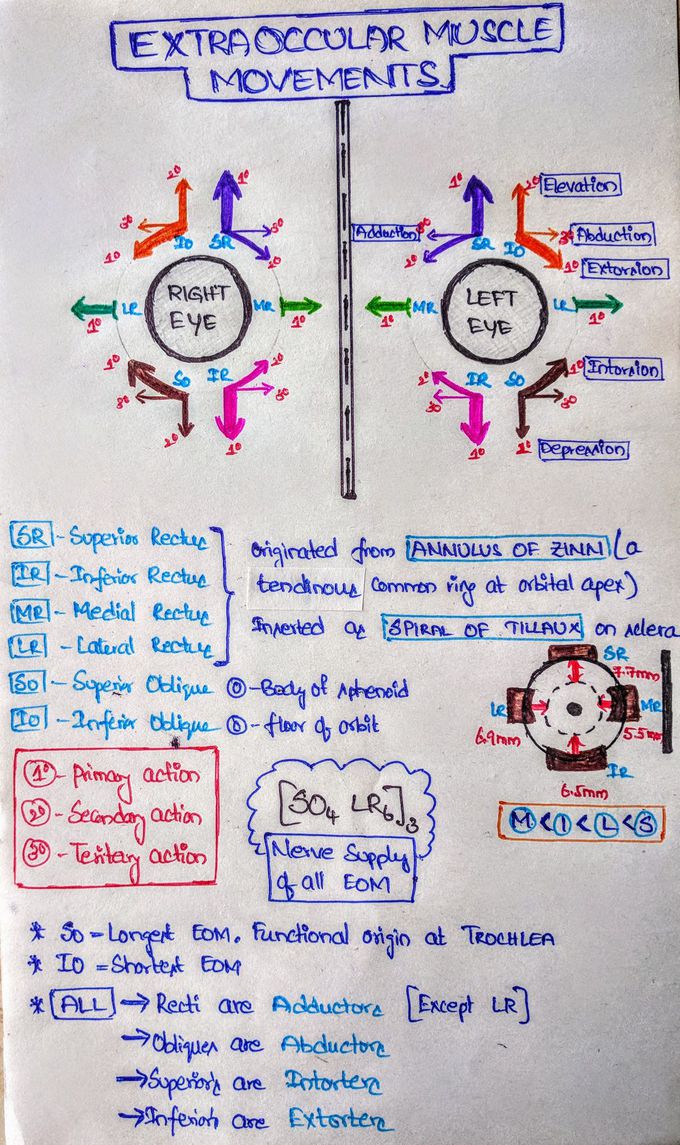 EXTRAOCCULAR MUSCLE
MOVEMENTS
2° 1° 1° 2° Elevation
3° 3° Adduction 3° 3° Abduction
1° IO SR 2° 2° SR IO 1° Extorsion
LR RIGHT EYE MR MR LEFT EYE LR
1° 1° 1° 1°
1° SO IR 2° 2° IR SO 1° Intorsion
3° 3° 3° 3°
2° 1° 1° 2° Depression
SR - Superior Rectus
IR - Inferior Rectus
MR - Medial Rectus
LR - Lateral Rectus
originated from ANNULUS OF ZINN (a
tendinous common ring at orbital apex)
Inserted as SPIRAL OF TILLAUX on sclera
SO - Superior Oblique O - Body of sphenoid
IO - Inferior Oblique O - floor of orbit
SR
7.7mm
LR MR
6.9mm 5.5mm
IR
6.5mm
M < I < L < S
1° - Primary action
2° - Secondary action
3° - Teritary action
[SO4 LR6]3
Nerve Supply
of all EOM
* SO = Longest EOM. Functional origin at TROCHLEA
* IO = Shortest EOM
* ALL → Recti are Adductors [Except LR]
→ Obliques are Abductors
→ Superiors are Intorters
→ Inferiors are Extorters